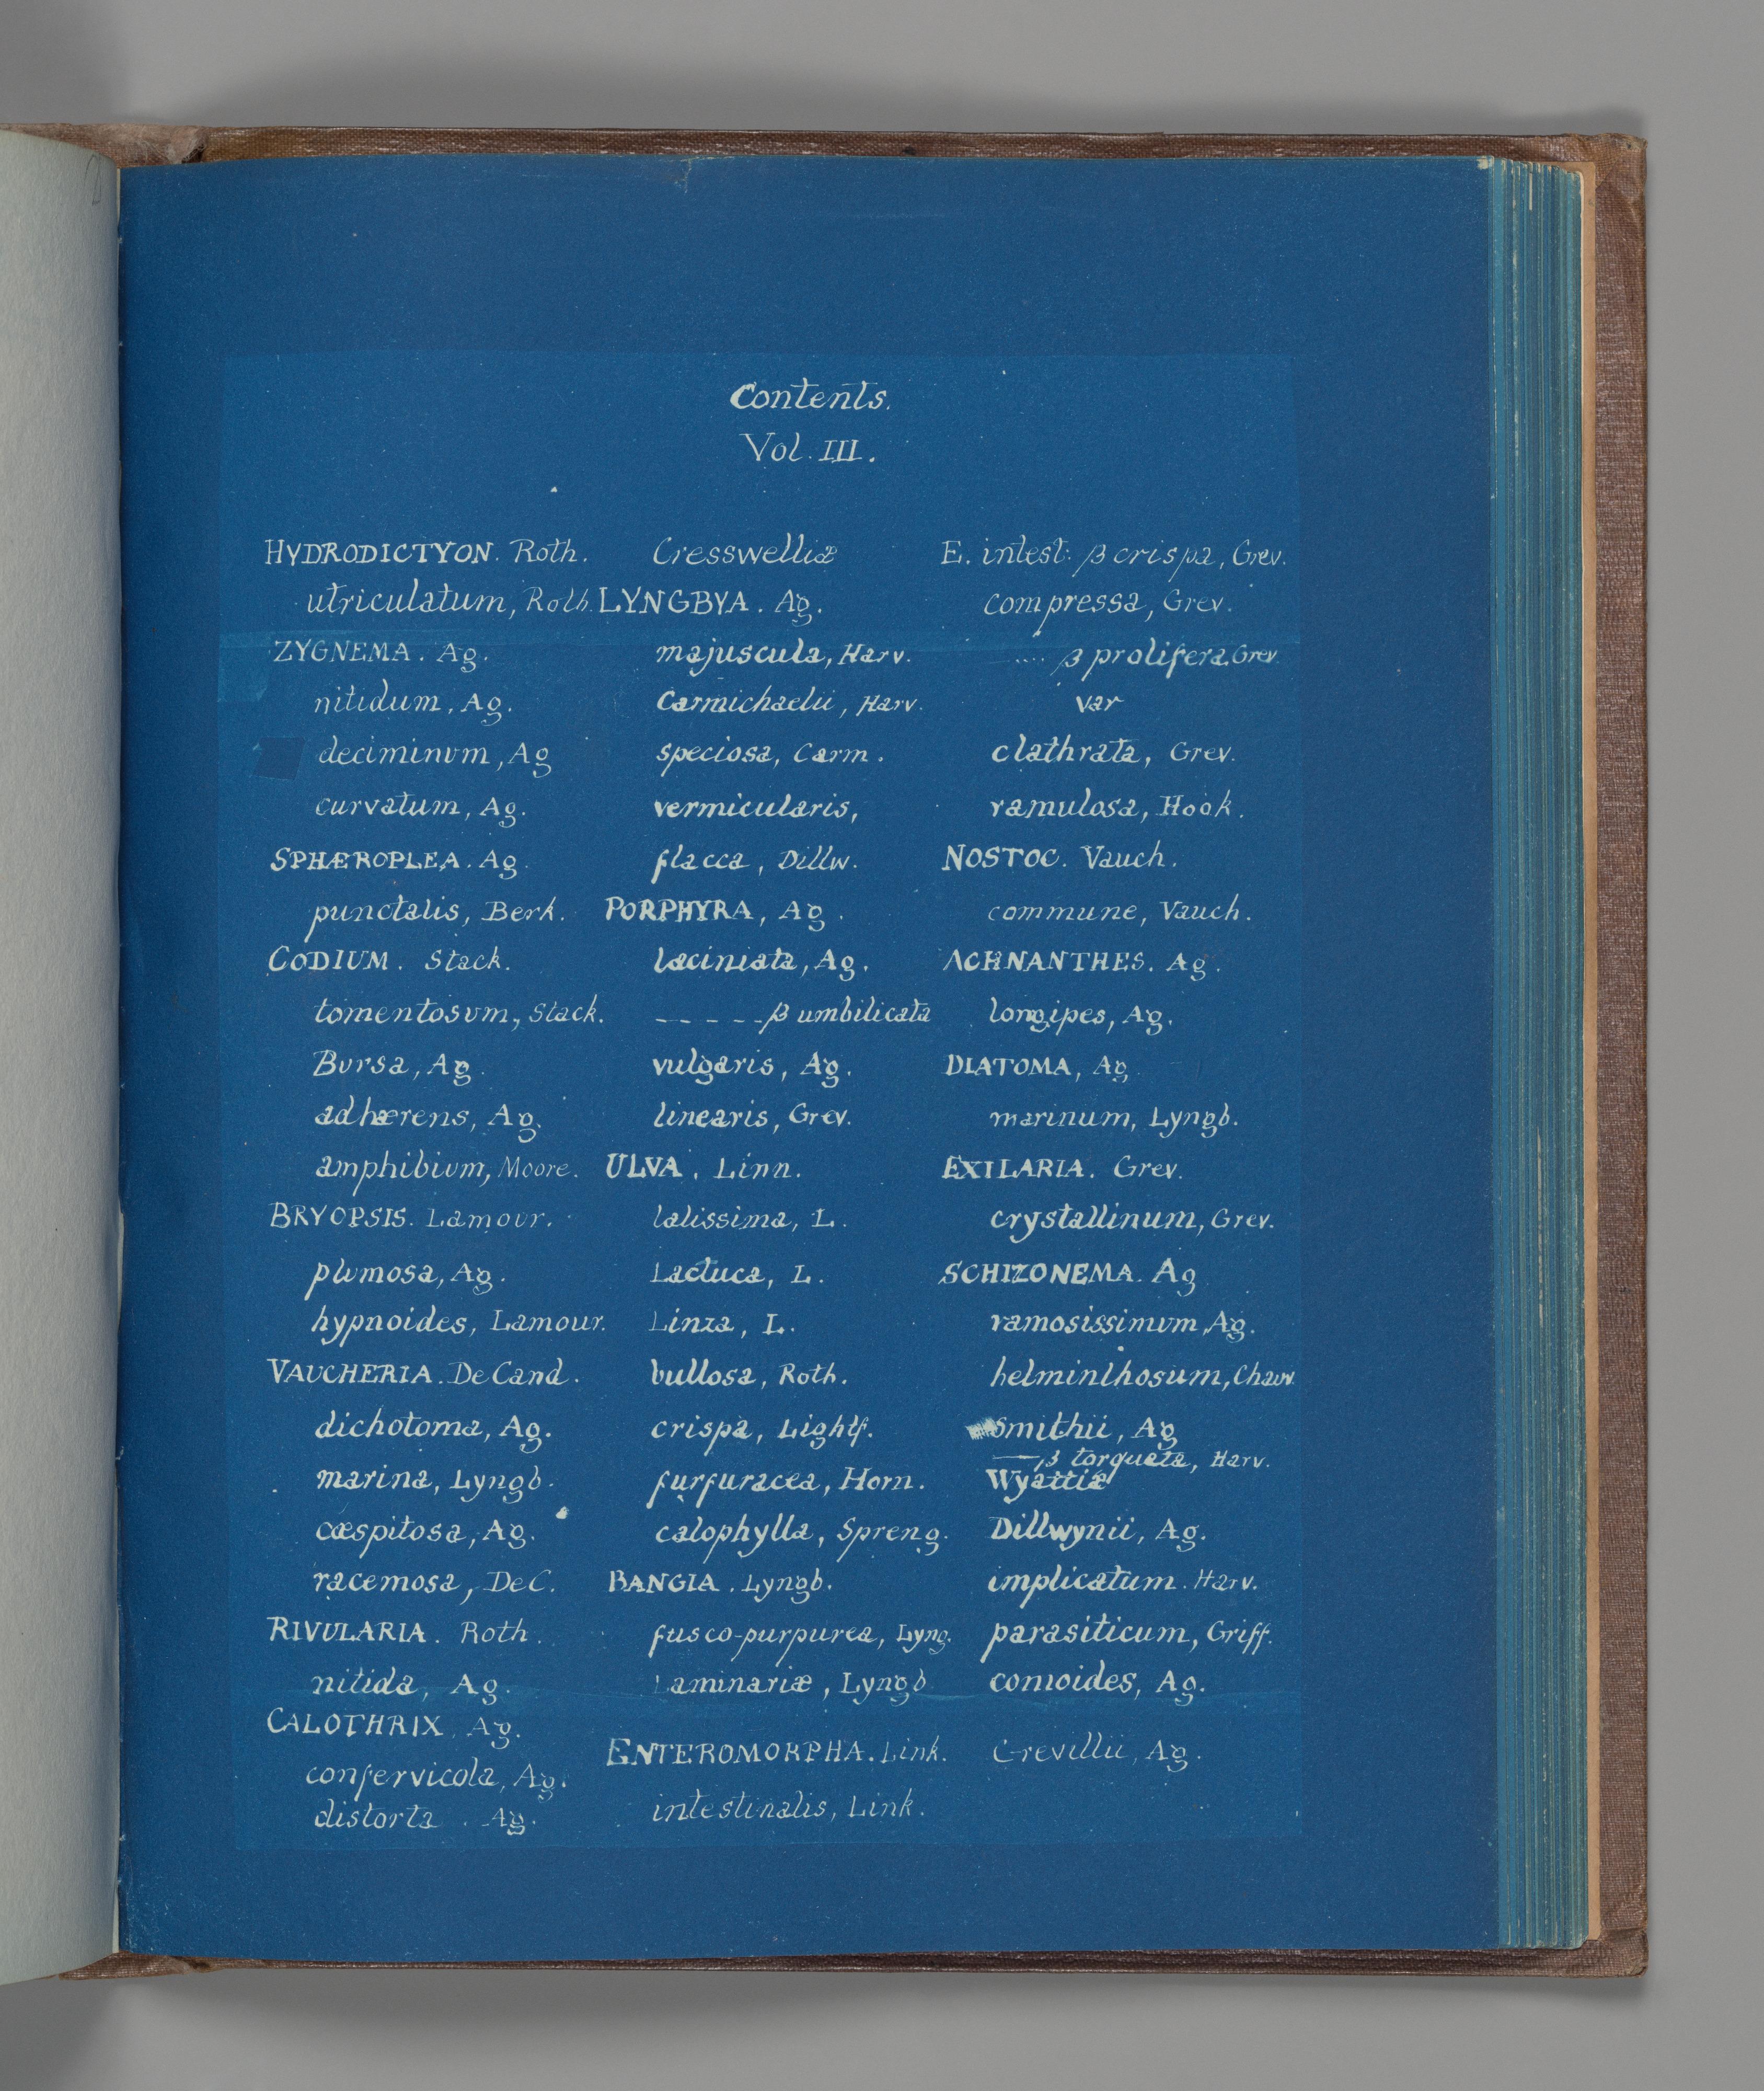 Contents.
Vol. III.
HYDRODICTYON. Roth.
utriculatum, Roth.
ZYGNEMA. Ag.
nitidum, Ag.
deciminum, Ag
curvatum, Ag.
SPHÆROPLEA. Ag.
punctalis, Berk.
CODIUM. Stack.
tomentosum, Stack.
Bursa, Ag.
adhærens, Ag.
amphibium, Moore.
BRYOPSIS. Lamour.
plumosa, Ag.
hypnoides, Lamour.
VAUCHERIA. DeCand.
dichotoma, Ag.
marina, Lyngb.
cæspitosa, Ag.
racemosa, DeC.
RIVULARIA. Roth.
nitida, Ag.
CALOTHRIX. Ag.
confervicola, Ag.
distorta. Ag.
Cresswelliæ
LYNGBYA. Ag.
majuscula, Harv.
Carmichaelii, Harv.
speciosa, Carm.
vermicularis,
flacca, Dillw.
PORPHYRA, Ag.
laciniata, Ag.
_ _ _ _ _ β umbilicata
vulgaris, Ag.
linearis, Grev.
ULVA. Linn.
latissima, L.
Lactuca, L.
Linza, L.
bullosa, Roth.
crispa, Lightf.
furfuracea, Horn.
calophylla, Spreng.
BANGIA. Lyngb.
fusco-purpurea, Lyng.
Laminariæ, Lyngb
ENTEROMORPHA. Link.
intestinalis, Link.
E. intest. β crispa, Grev.
compressa, Grev.
.... β prolifera. Grev
var
clathrata, Grev.
ramulosa, Hook.
NOSTOC. Vauch.
commune, Vauch.
ACHNANTHES. Ag.
longipes, Ag.
DIATOMA, Ag
marinum, Lyngb.
EXILARIA. Grev.
crystallinum, Grev.
SCHIZONEMA. Ag
ramosissimum, Ag.
helminthosum, Chauv.
Smithii, Ag
— β torquata, Harv.
Wyattiæ
Dillwynii, Ag.
implicatum. Harv.
parasiticum, Griff.
comoides, Ag.
Grevillii, Ag.